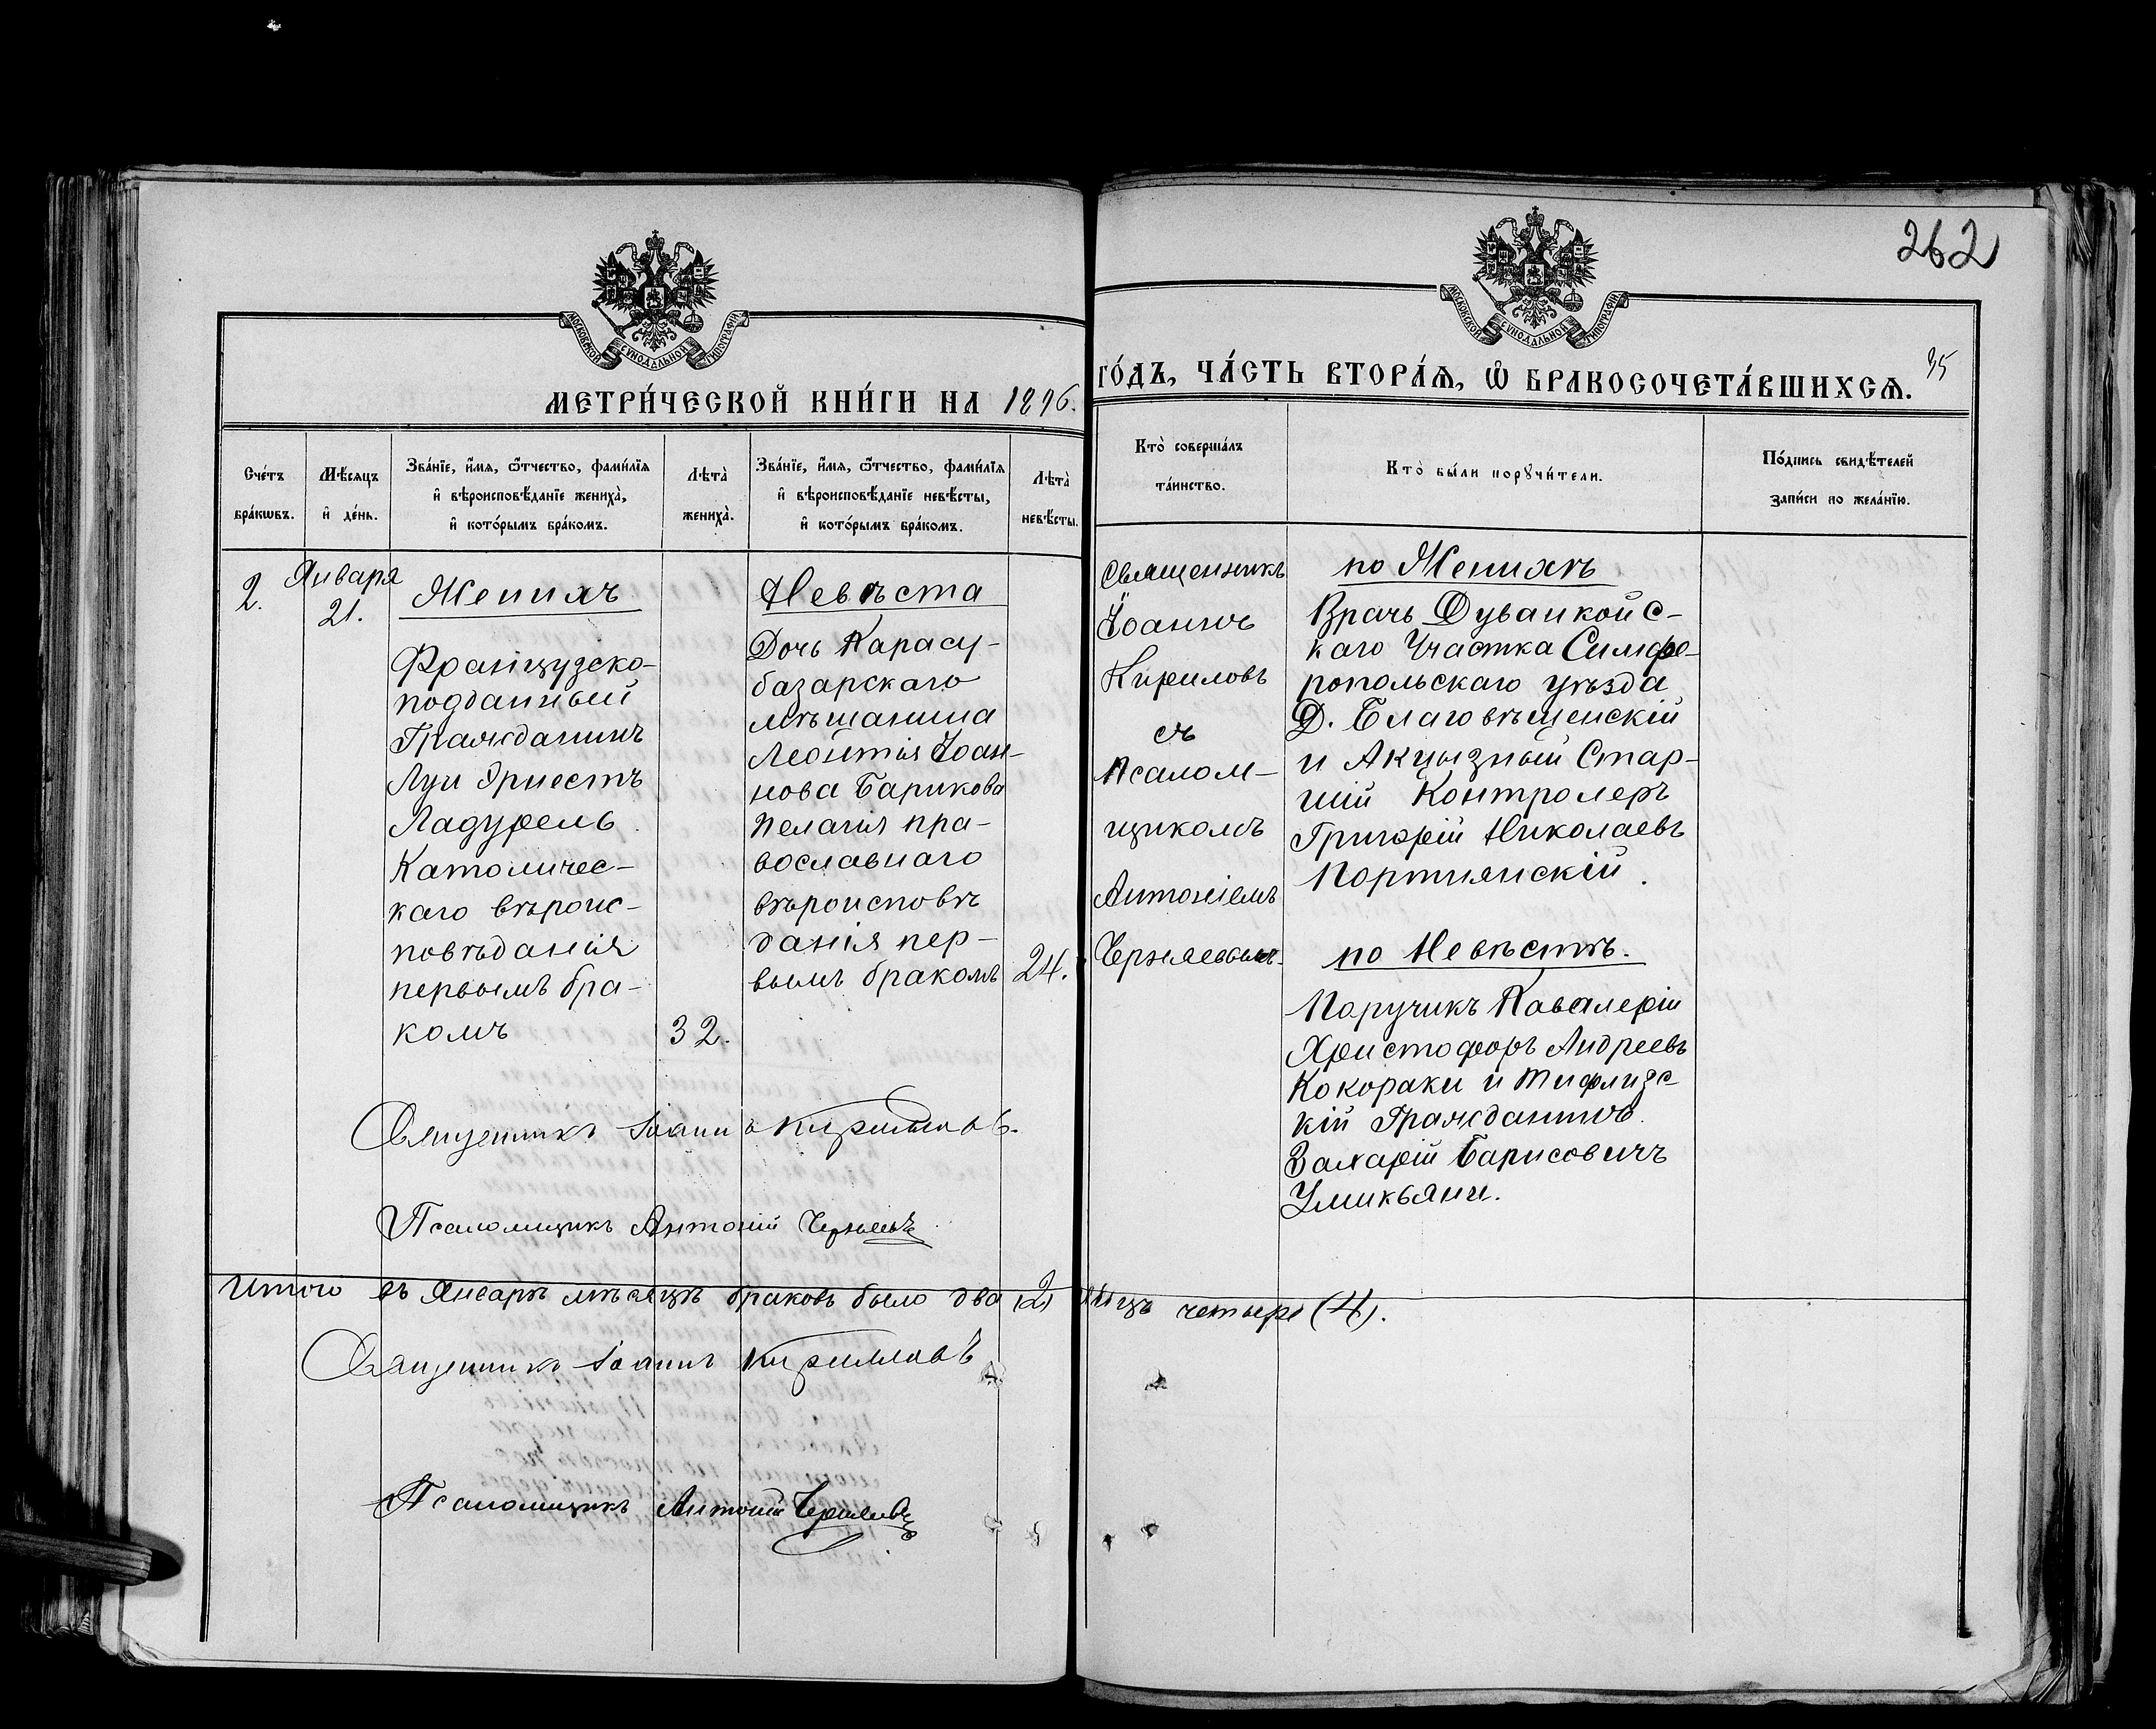 262
МОСКОВСКОЙ СѴНОДАЛЬНОЙ ТИПОГРАФІИ
МОСКОВСКОЙ СѴНОДАЛЬНОЙ ТИПОГРАФІИ
МЕТРИ́ЧЕСКОЙ КНИ́ГИ НА 1896. ГО́ДЪ, ЧА́СТЬ ВТОРА́Ѧ, Ѿ БРАКОСОЧЕТА́ВШИХСѦ. 35
Сче́тъ
бра́кѡвъ.
Мѣ́сяцъ
и҆ де́нь.
Зва́нїе, и҆́мѧ, ѻ҆́тчество, фами́лїѧ
и҆ вѣроисповѣ́данїе жениха̀,
и҆ кото́рымъ бра́комъ.
Лѣта̀
жениха̀.
Зва́нїе, и҆́мѧ, ѻ҆́тчество, фами́лїѧ
и҆ вѣроисповѣ́данїе невѣ́сты,
и҆ кото́рымъ бра́комъ.
Лѣта̀
невѣ́сты.
Кто̀ соверша́лъ
та́инство.
Кто̀ бы́ли порꙋчи́тели.
По́дпись свидѣ́телей
за́писи по жела́нїю.
2.
Января
21.
Женихъ
Французско-
подданный
Гражданинъ
Луи Эрнестъ
Ладурель
Католичес-
каго вѣроис-
повѣданія
первымъ бра-
комъ
32.
Невѣста
Дочь Карасу-
базарскаго
мѣщанина
Леонтія Іоан-
нова Барикова
Пелагія пра-
вославнаго
вѣроисповѣ
данія пер-
вымъ бракомъ
24.
Священникъ
Іоаннъ
Кириловъ
съ
Псалом-
щикомъ
Антоніемъ
Черняевымъ
по Женихѣ
Врачъ Дуванкойс-
каго Участка Симфе-
ропольскаго уѣзда
Д. Благовѣщенскій
и Акцызный Стар-
шій Контролеръ
Григорій Николаевъ
Портянскій.
по Невѣстѣ.
Поручикъ Кавалеріи
Христофоръ Андреевъ
Кокораки и Тифлизс-
кій Гражданинъ
Захарій Барисовичъ
Умикьянц.
Священникъ Іоаннъ Кирилловъ.
Псаломщикъ Антоній Черняевъ
Итого въ Январѣ мѣсяцѣ браковъ было два (2) лицъ четыре (4).
Священникъ Іоаннъ Кирилловъ
Псаломщикъ Антоній Черняевъ